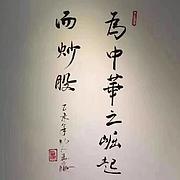 為中華之崛起
而炒股
乙未年